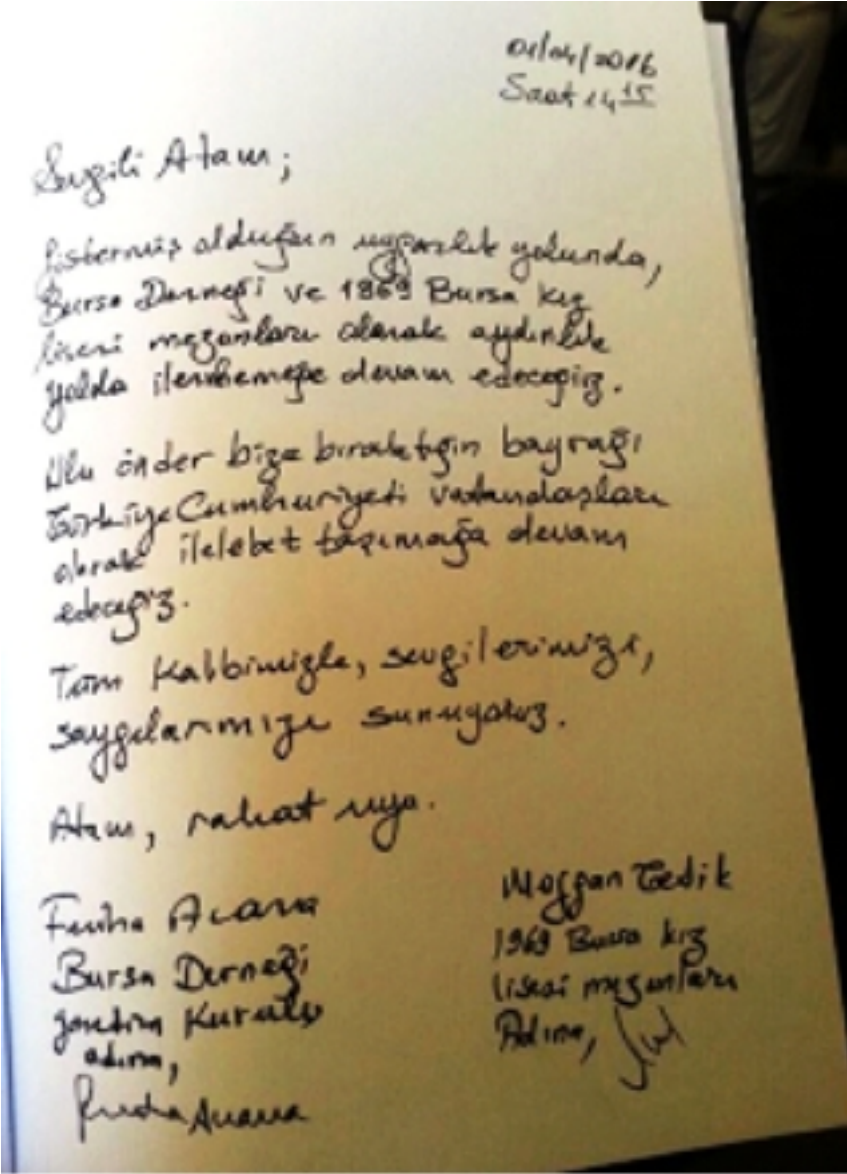 01/04/2016
Saat 14 15
Sevgili Atam;
göstermiş olduğun uygarlık yolunda,
Bursa Derneği ve 1969 Bursa kız
lisesi mezunları olarak aydınlık
yolda ilerlemeğe devam edeceğiz.
Ulu önder bize bıraktığın bayrağı
Türkiye Cumhuriyeti vatandaşları
olarak ilelebet taşımağa devam
edeceğiz.
Tüm Kalbimizle, sevgilerimizi,
saygılarımızı sunuyoruz.
Atam, rahat uyu.
Bursa Derneği
yönetim Kurulu
adına,
Gedik
1969 Bursa kız
lisesi mezunları
Adına,